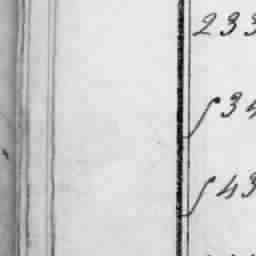 233
∫34
∫43